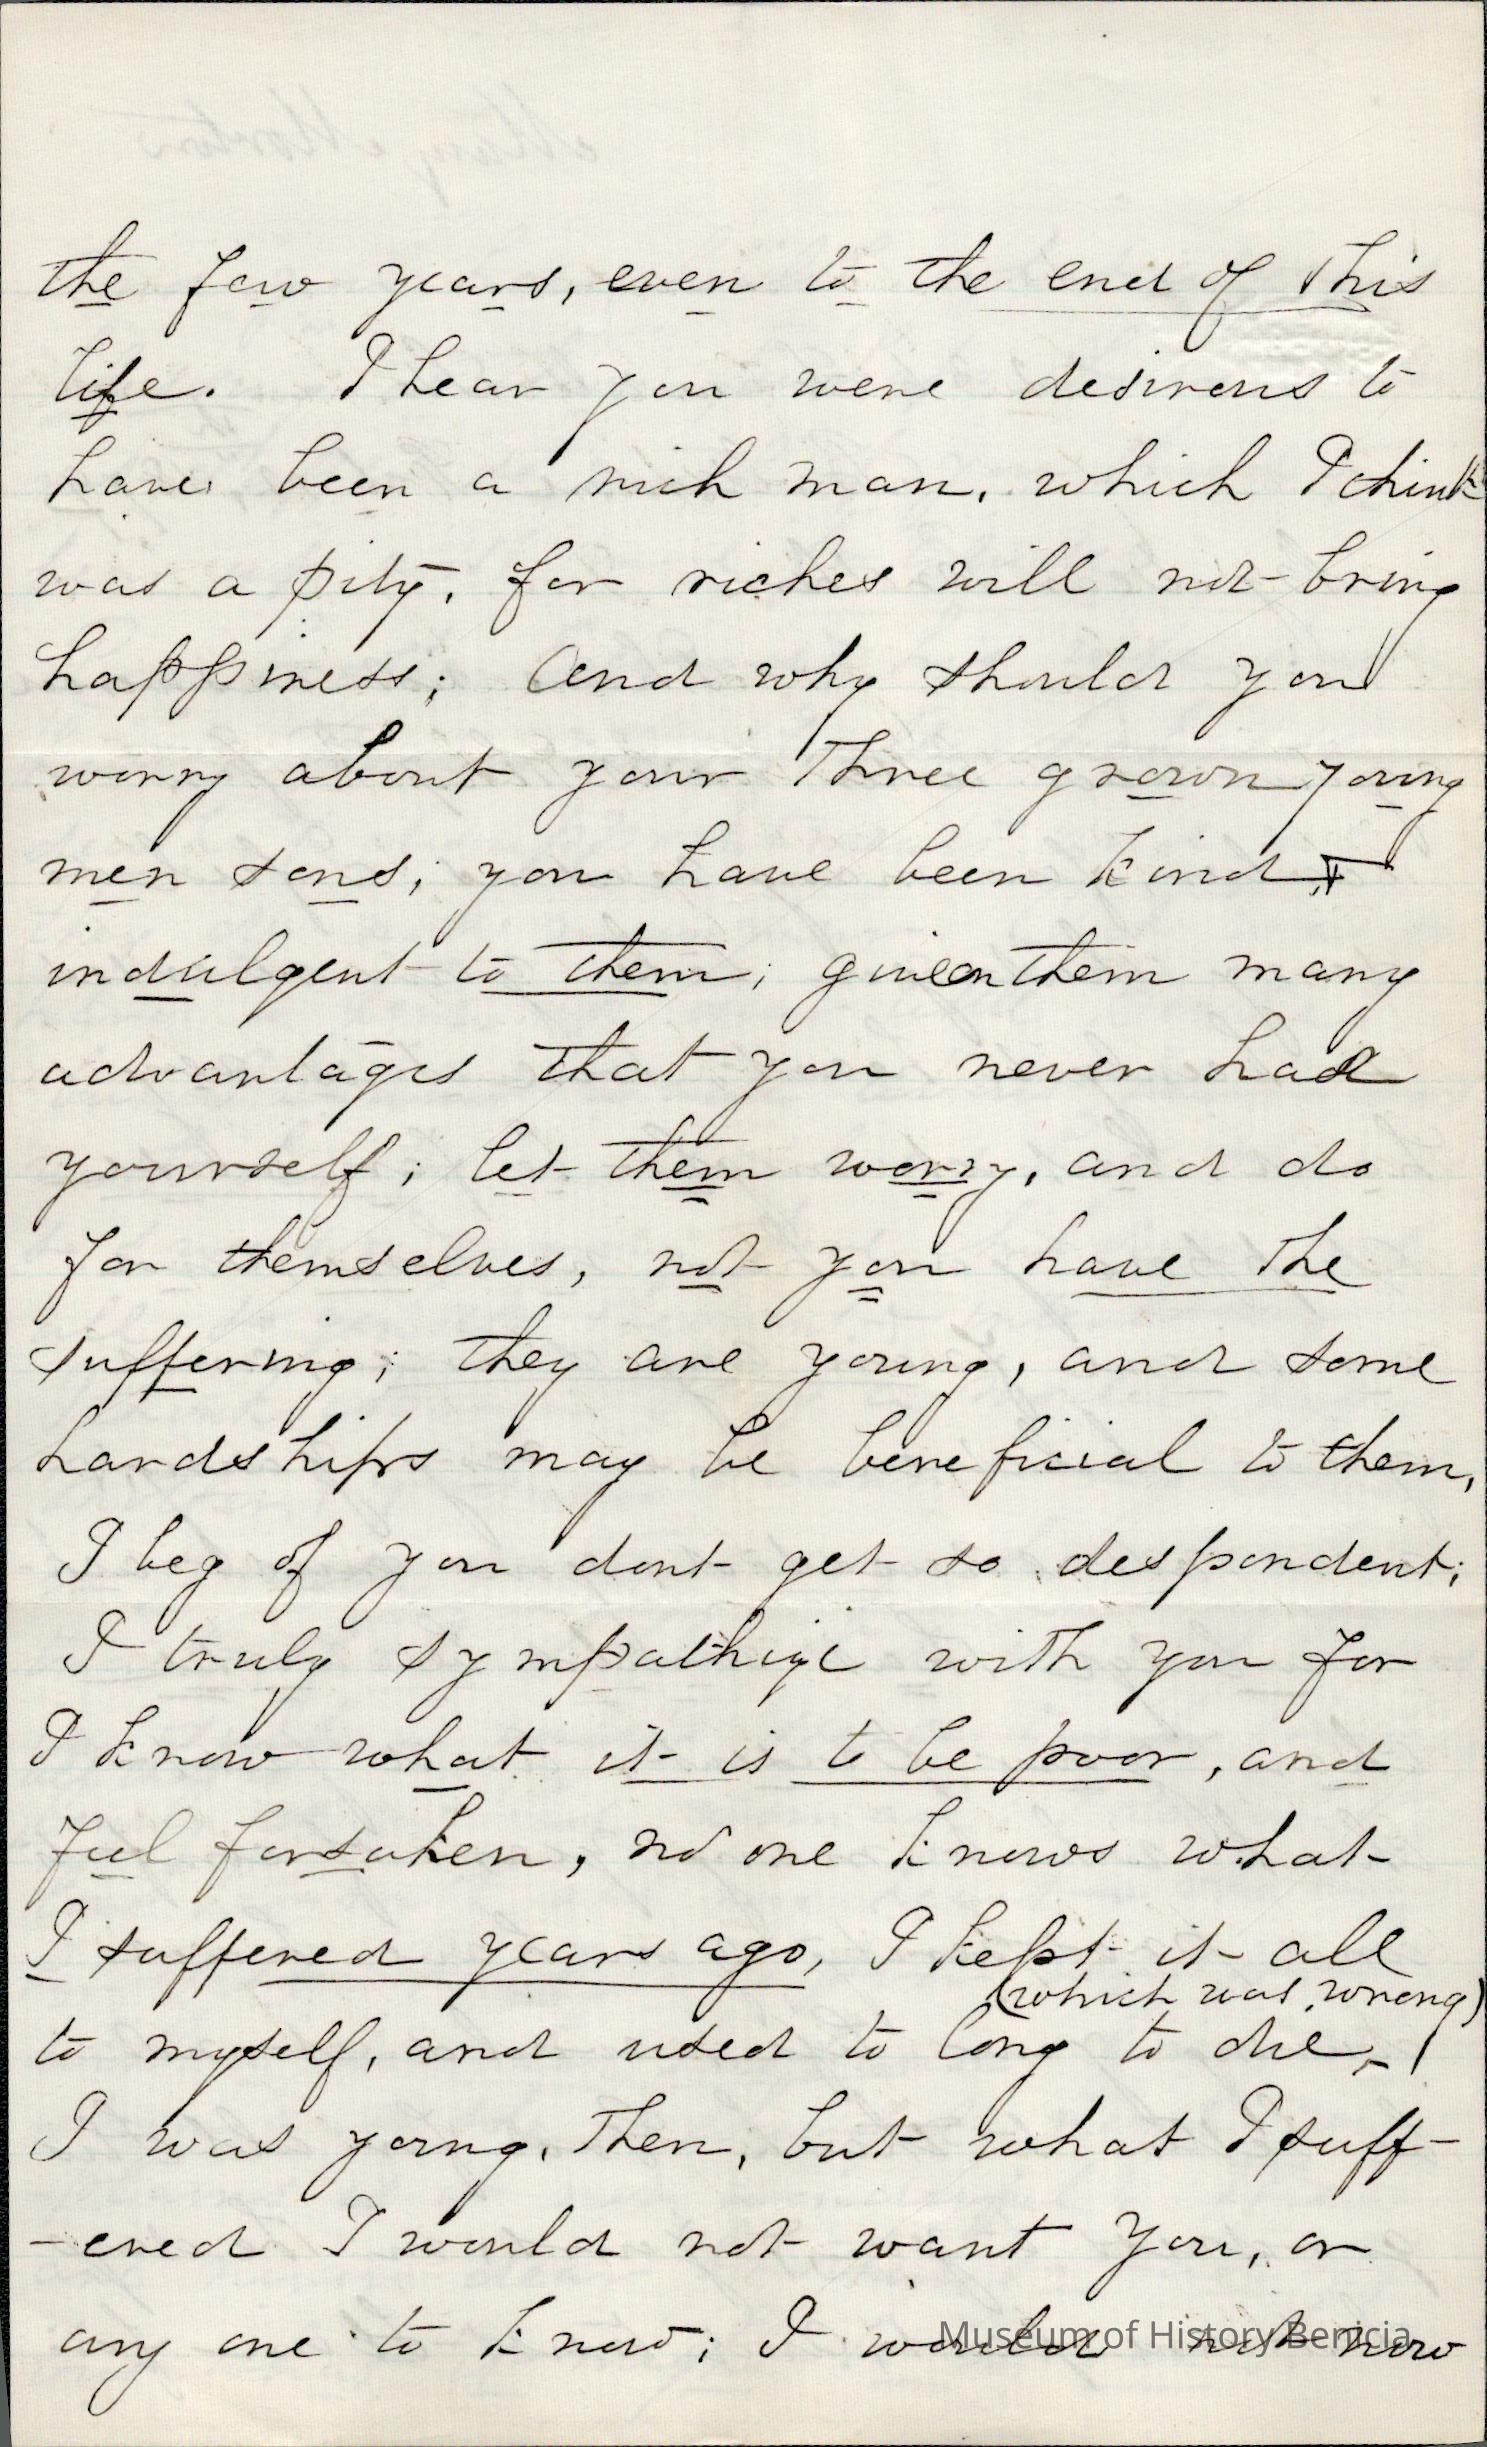 the few years, even to the end of this
life. I hear you were desirous to
have been a rich man, which I think
was a pity, for riches will not bring
happiness; and why should you
worry about your three grown young
men sons; you have been kind &
indulgent to them; given them many
advantages that you never had
yourself; let them worry, and do
for themselves, not you have the
suffering; they are young, and some
hardships may be beneficial to them,
I beg of you dont get so despondent;
I truly sympathize with you for
I know what it is to be poor, and
feel forsaken, no one knows what
I suffered years ago, I kept it all
(which was wrong)
to myself, and used to long to die,-!
I was young, then, but what I suff-
-ered I would not want you, or
any one to know; I would not now
Museum of History Benicia